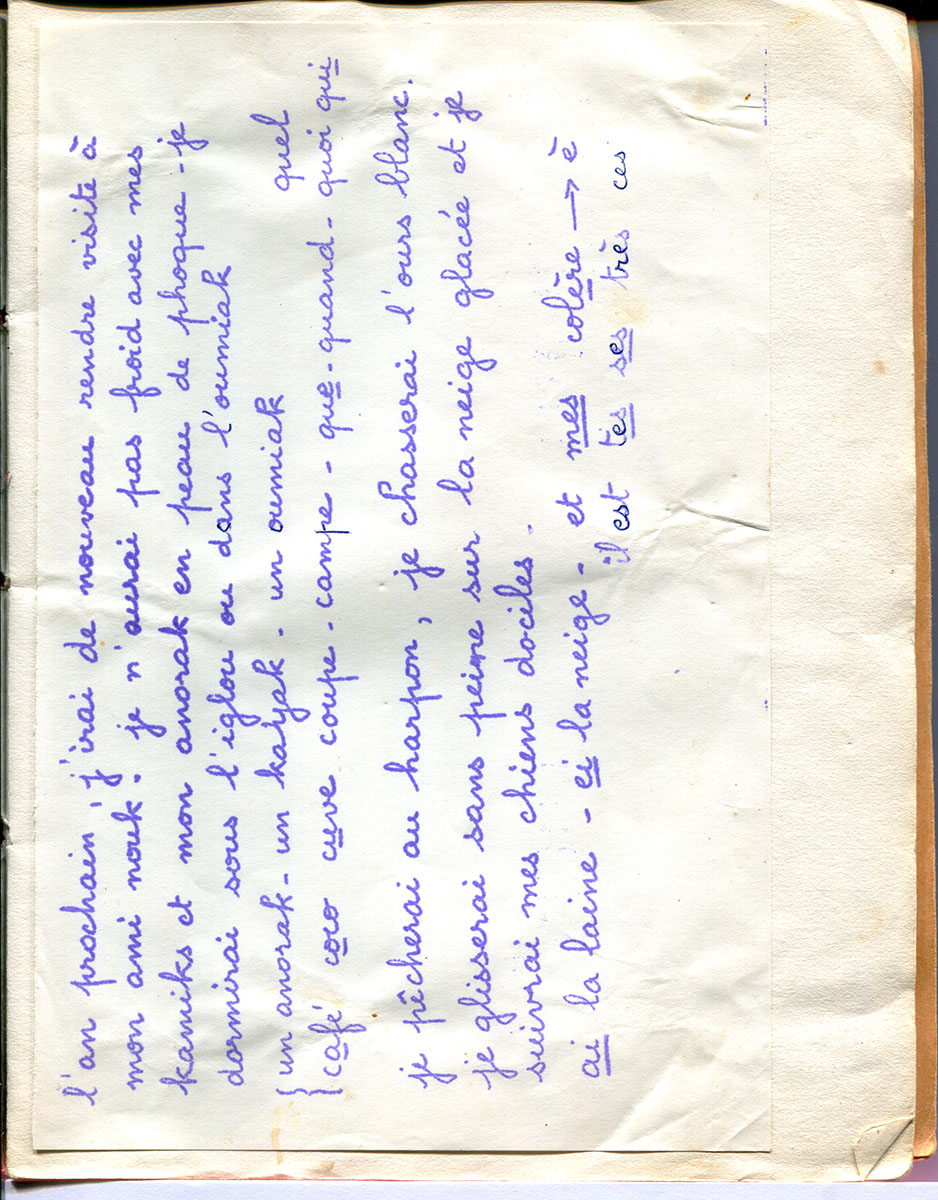 l'an prochain, j'irai de nouveau rendre visite à
mon ami nouk. je n'aurai pas froid avec mes
kamiks et mon anorak en peau de phoque - je
dormirai sous l'iglou ou dans l'oumiak
{ un anorak - un kayak - un oumiak quel
{ café coco cuve coupe - campe - que - quand - quoi qui
je pêcherai au harpon, je chasserai l'ours blanc.
je glisserai sans peine sur la neige glacée et je
suivrai mes chiens dociles.
ai la laine - ei la neige - et mes colère → è
il est tes ses très ces